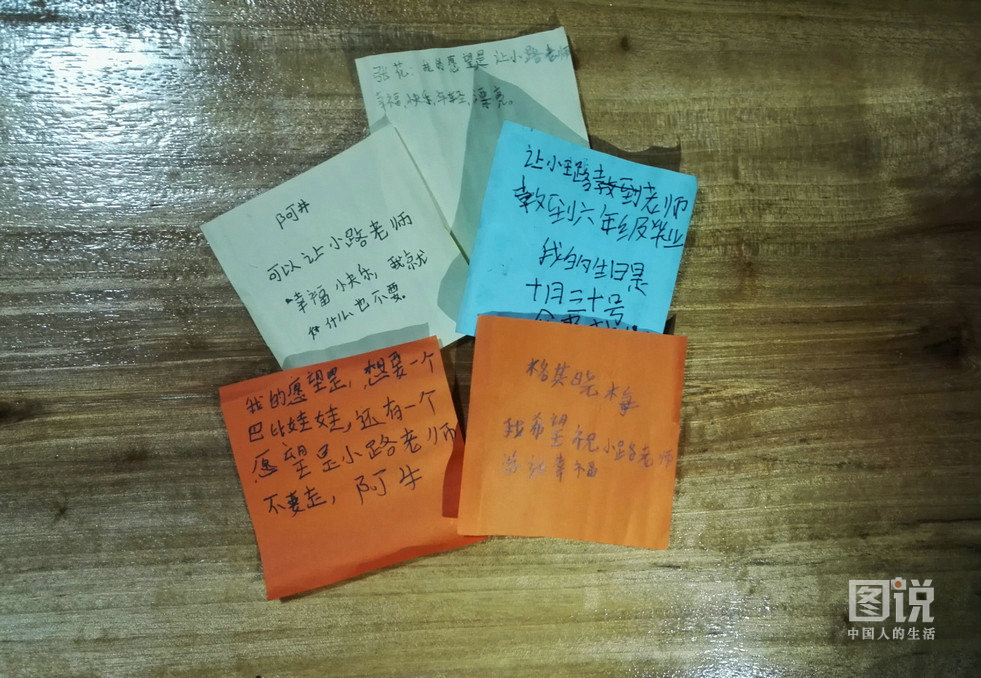 张花：我的愿望是让小路老师
幸福,快乐,年轻,漂亮。
阿井
可以让小路老师
幸福快乐,我就
什么也不要。
让小路教到老师
教到六年级毕业
我的生日是
十月三十号
我的愿望是,想要一个
巴比娃娃,还有一个
愿望是小路老师
不要走,阿牛
格其晓梅
我希望祝小路老师
幸福
图说
中国人的生活